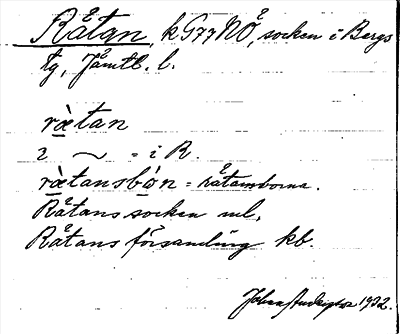 Råtan, k G77 NÖ, socken i Bergs
tg, Jämtl. l.
rætan
2 ~ = i R.
rætansbon = Råtanborna.
Råtans socken ml,
Råtans församling kb.
1932.